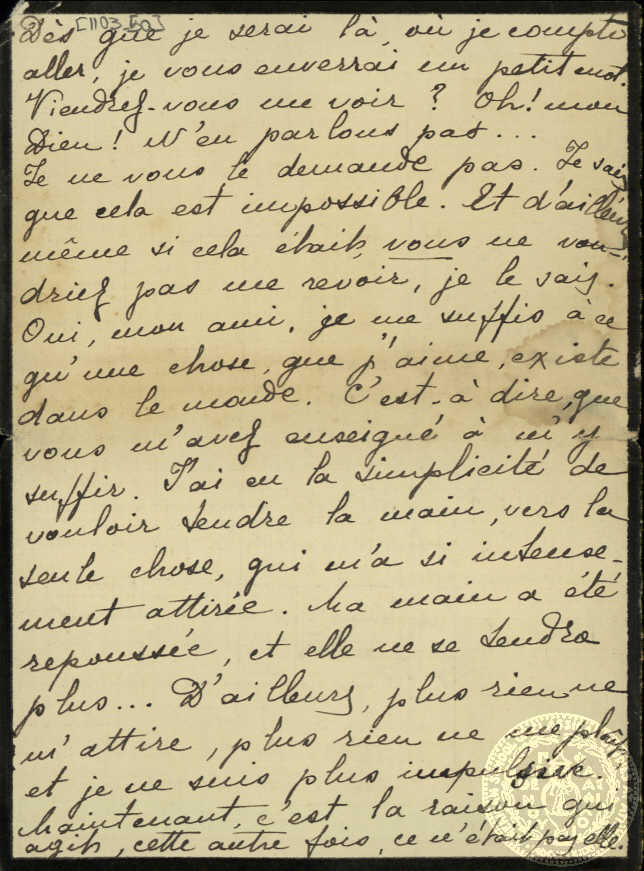 [1103_50]
Dès que je serai là, où je compte
aller, je vous enverrai un petit mot.
Viendrez-vous me voir ? Oh! mon
Dieu! N'en parlons pas...
Je ne vous le demande pas. Je sais
que cela est impossible. Et d'ailleurs
même si cela était, vous ne vou-
driez pas me revoir, je le sais.
Oui, mon ami, je me suffis à ce
qu'une chose, que j'aime, existe
dans le monde. C'est-à dire, que
vous m'avez enseigné à m'y
suffir. J'ai eu la simplicité de
vouloir tendre la main, vers la
seule chose, qui m'a si intense-
ment attirée. Ma main a été
repoussée, et elle ne se tendra
plus... D'ailleurs, plus rien ne
m'attire, plus rien ne me plaît,
et je ne suis plus impulsive.
Maintenant, c'est la raison qui
agit, cette autre fois, ce n'était pas elle.